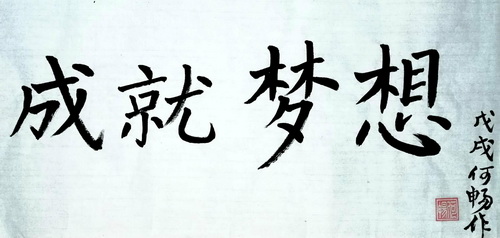 成就梦想
戊戌何畅作